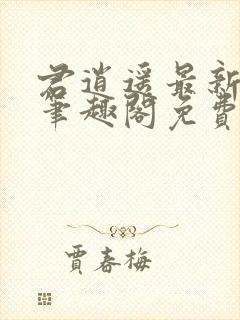 君逍遥最新
笔趣阁免費
賈春梅